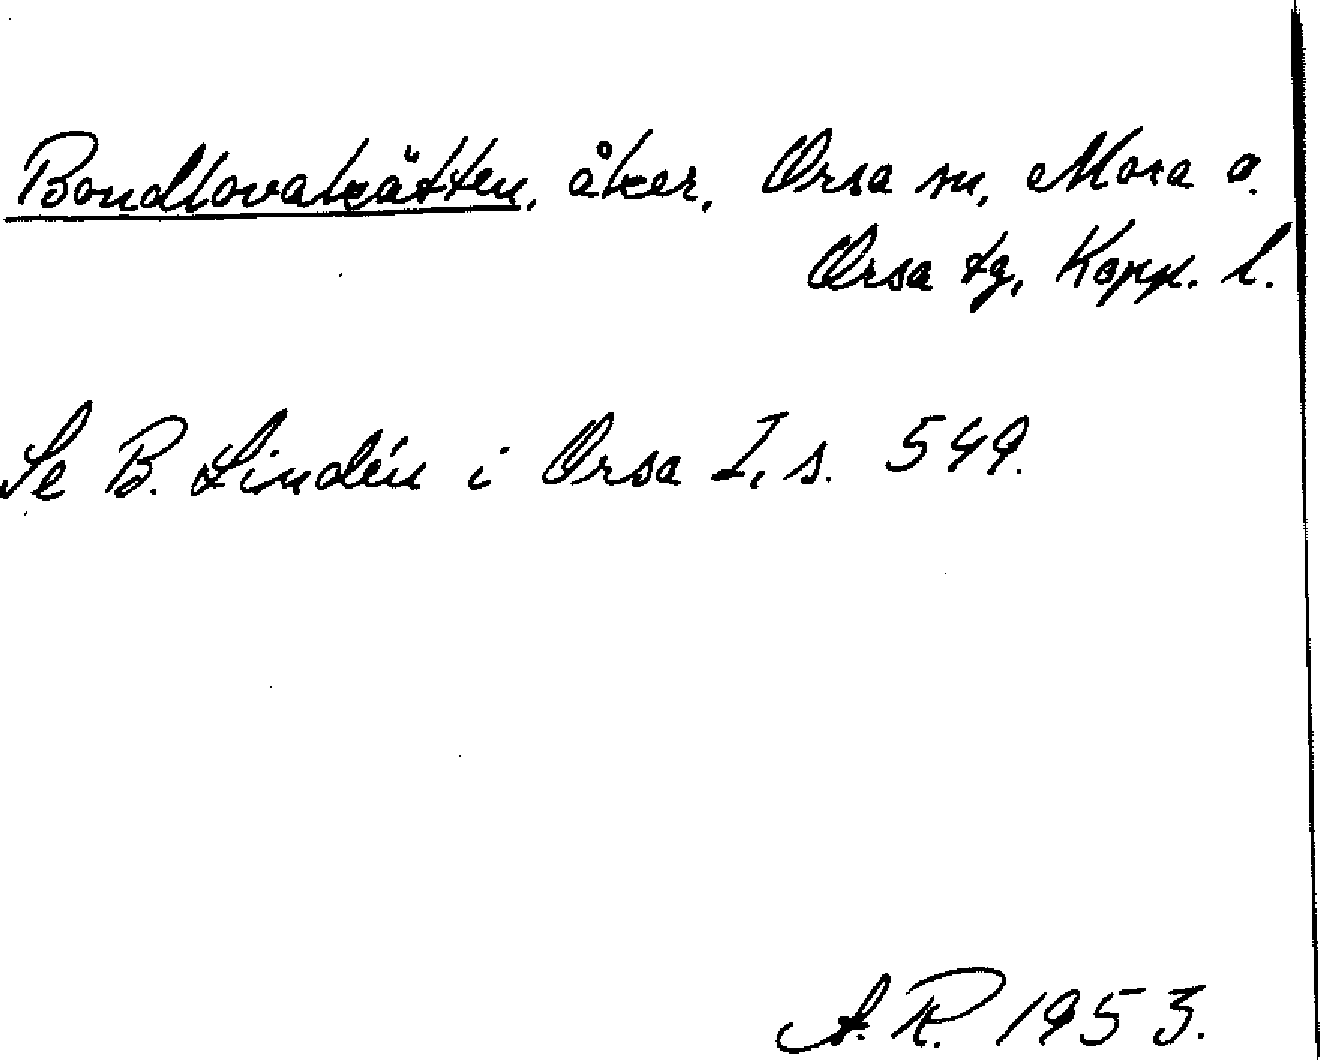 Bondlovakätten, åker, Orsa sn, Mora o.
Orsa tg, Kopp. l.
Se B. Lindén i Orsa I, s. 549.
A. R. 1953.